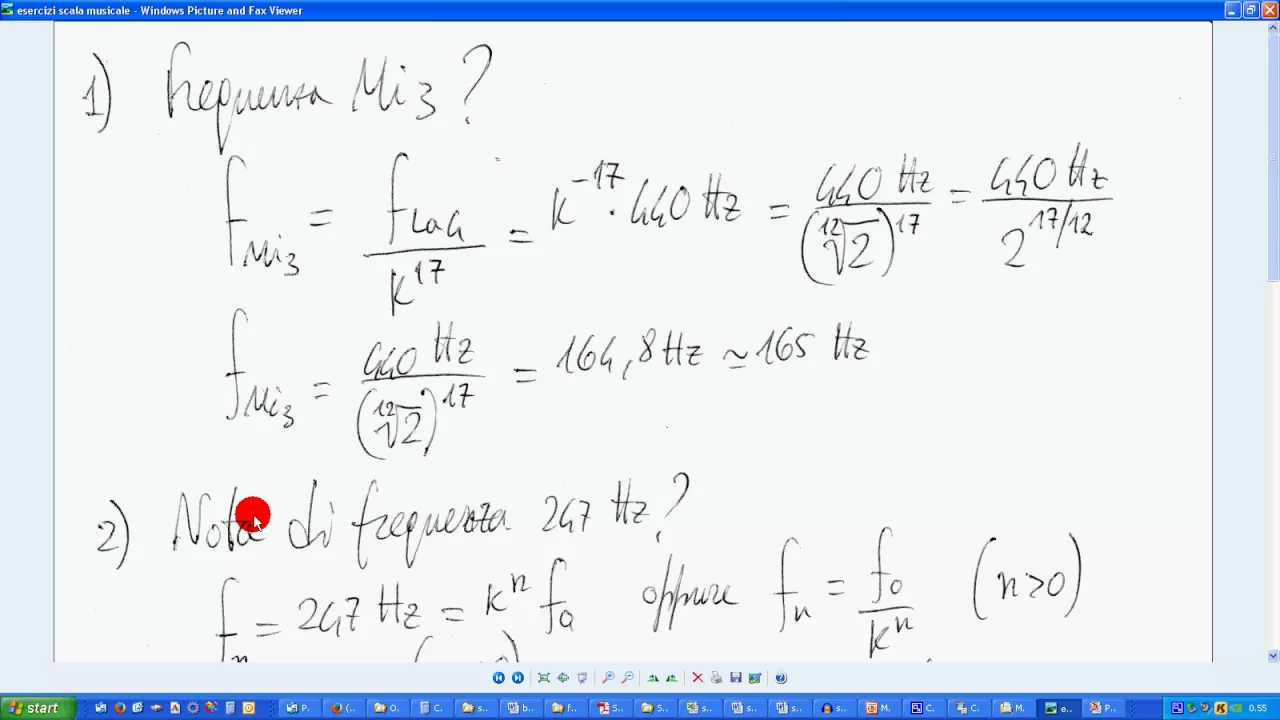 esercizi scala musicale - Windows Picture and Fax Viewer
1) frequenza Mi3?
f_Mi3 = f_La4 / k^17 = k^-17 · 440 Hz = 440 Hz / (¹²√2)^17 = 440 Hz / 2^17/12
f_Mi3 = 440 Hz / (¹²√2)^17 = 164,8 Hz ≃ 165 Hz
2) Nota di frequenza 247 Hz?
f_n = 247 Hz = k^n f_0 oppure f_n = f_0 / k^n (n>0)
start P. (. O. C. s. b. f. S. S. s. s. s. s. M. C. C. M. e. P. 0.55